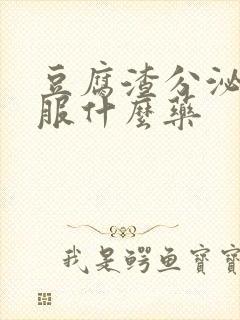 豆腐渣分泌
服什麼藥
我是鳄鱼寶寶